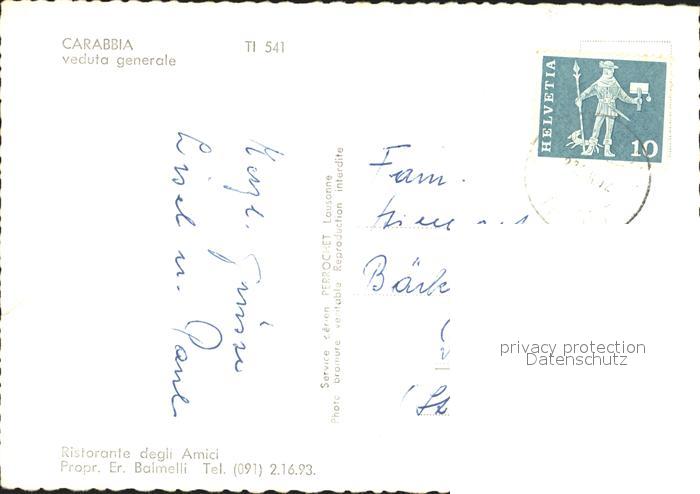 CARABBIA TI 541
veduta generale
HELVETIA
10
Herzl. Grüsse
Lisel u. Paul
Service aérien PERROCHET Lausanne
Photo bromure véritable Reproduction interdite
Fam.
privacy protection
Datenschutz
Ristorante degli Amici
Propr. Er. Balmelli Tel. (091) 2.16.93.